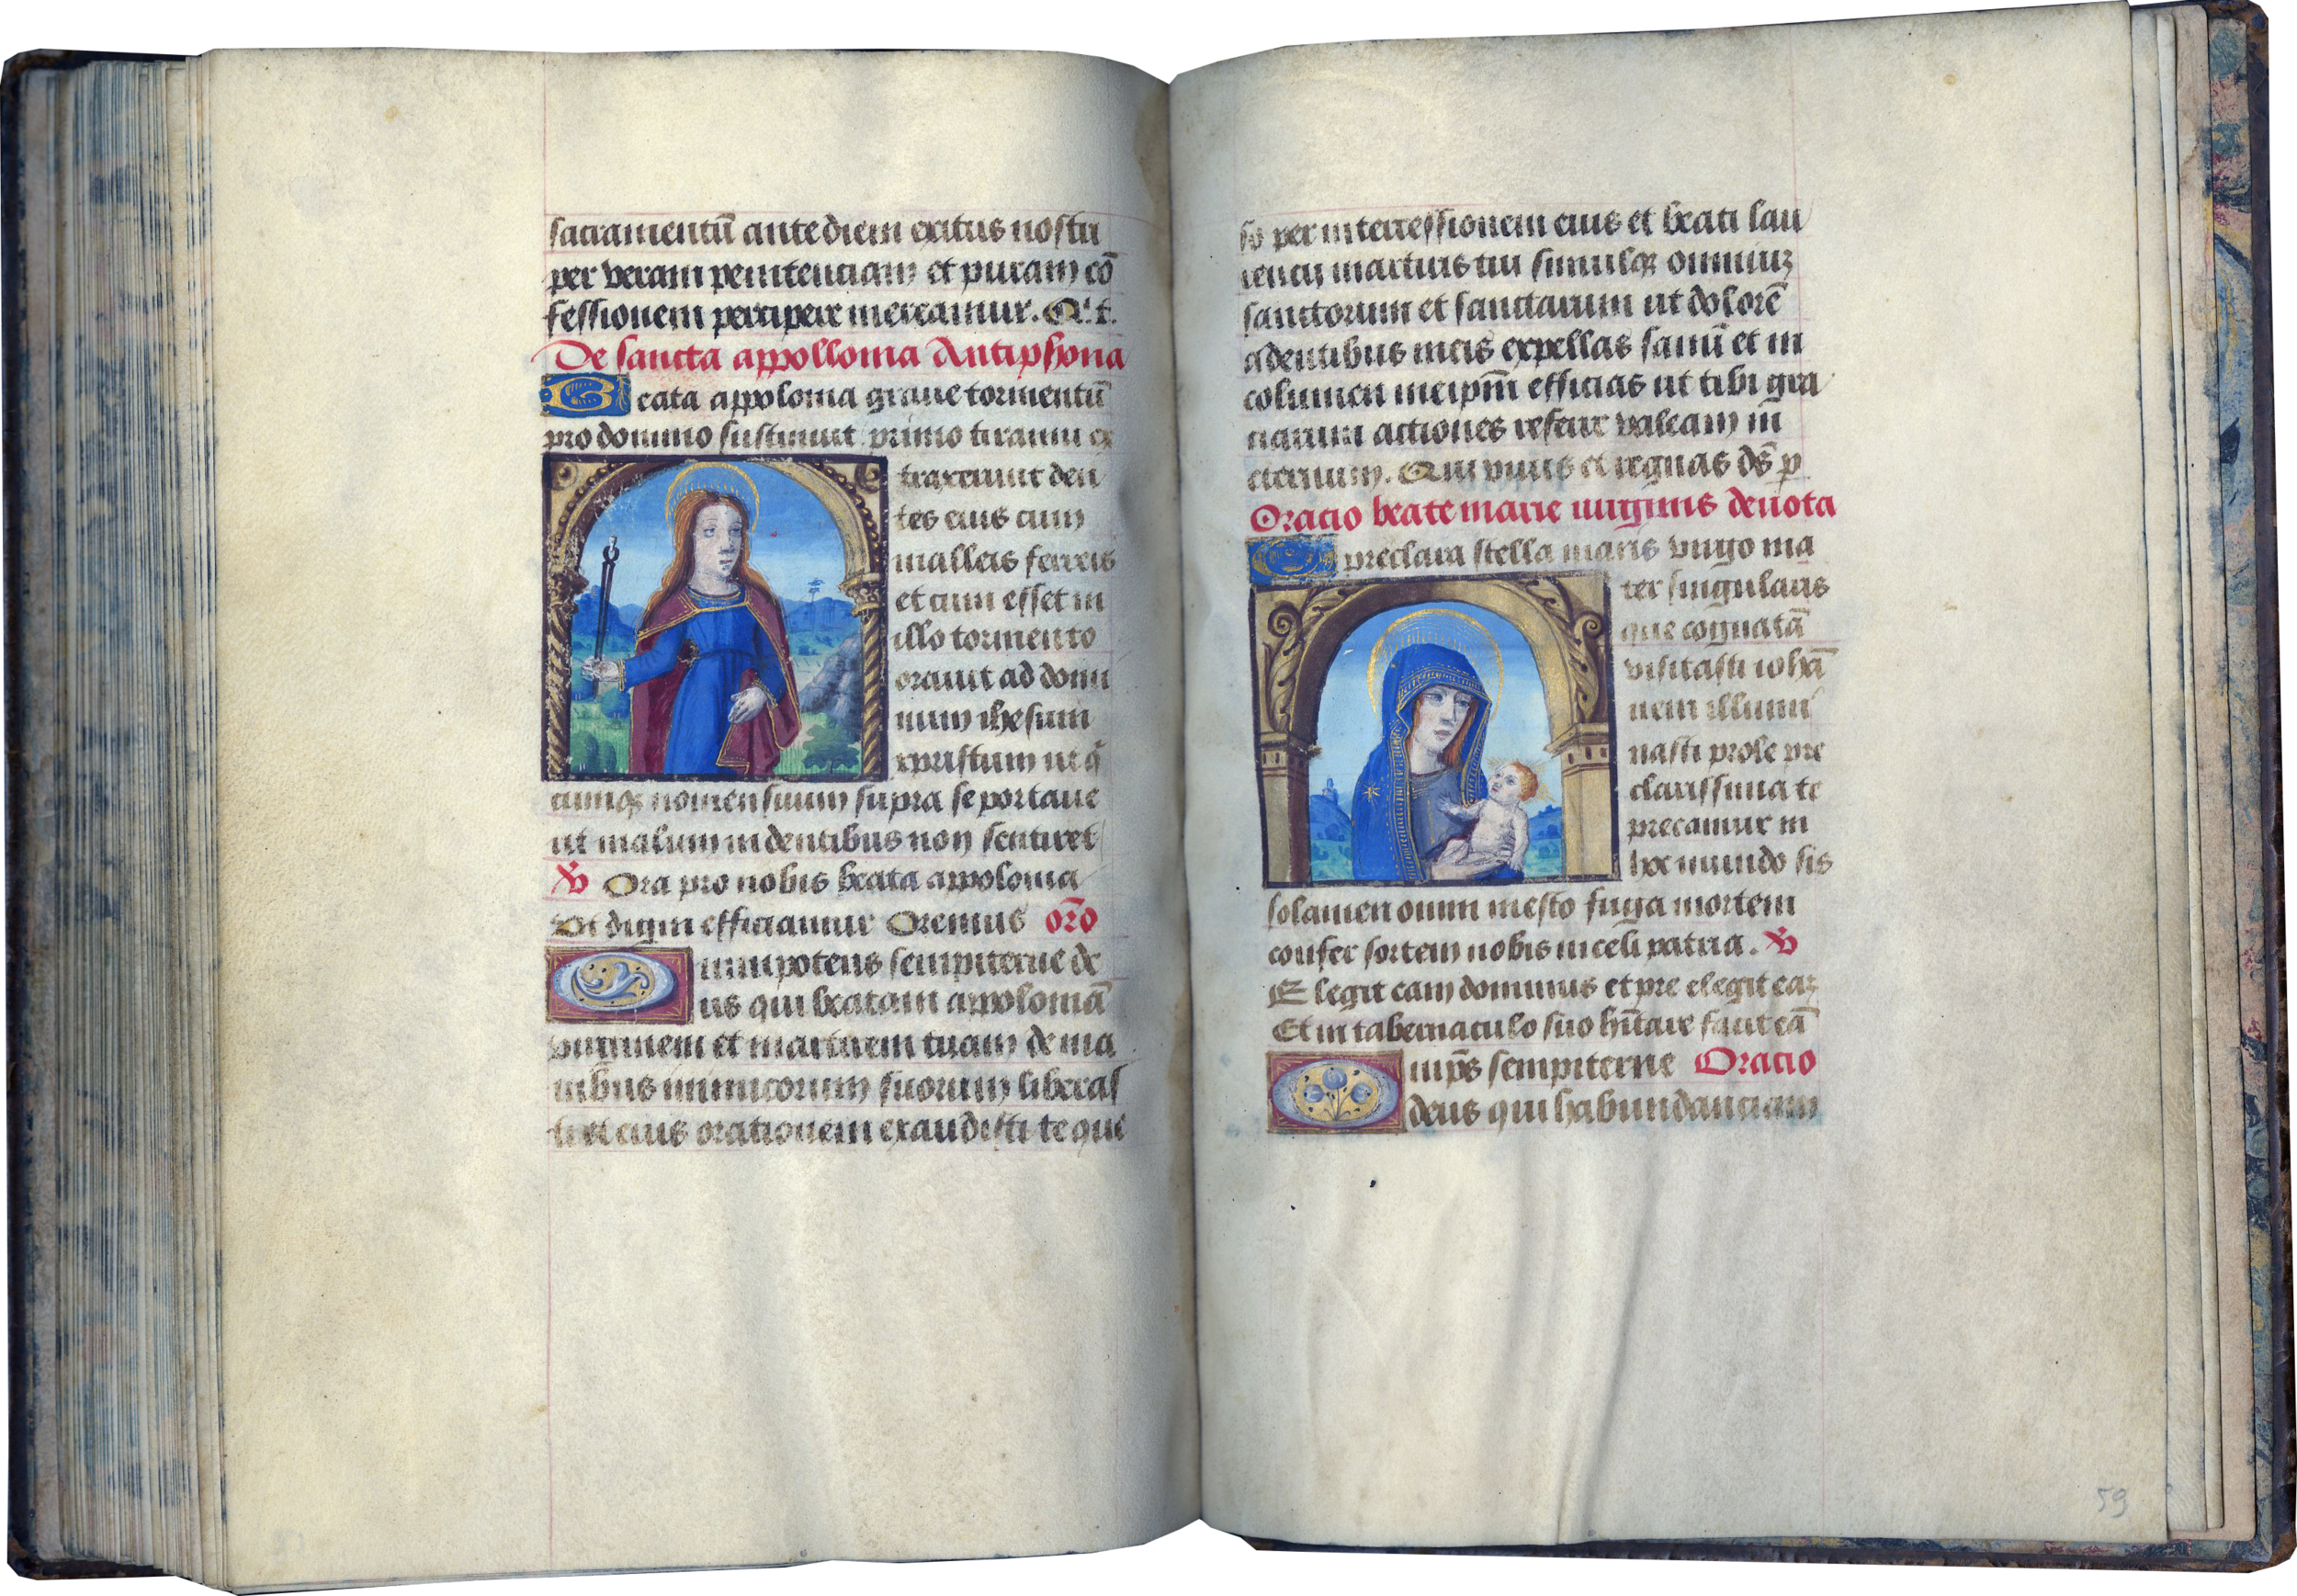 sacramentū ante diem exitus nostri
per veram penitenciam et puram cō
fessionem percipere mereamur. Q. t.
De sancta appollonia Antiphona
Beata appolonia graue tormentū
pro domino sustinuit primo tiranni ex
traxerunt den
tes eius cum
malleis ferreis
et cum esset in
illo tormento
orauit ad domi
num ihesum
xpristum ut q̄
cumq; nomen suum supra se portaue
ut malum in dentibus non sentiret
℣ Ora pro nobis beata appolonia
Ut digni efficiamur Oremus orō
Omnipotens sempiterne de
us qui beatam appoloniā
virginem et martirem tuam de ma
nibus inimicorum suorum liberas
ti et eius orationem exaudisti te que
so per intercessionem eius et beati lau
rencij martiris tui simulq; omniuz
sanctorum et sanctarum ut dolorē
a dentibus meis expellas sanū et in
columen meipm̄ efficias ut tibi gra
ciarum actiones referre valeam in
eternum. Qui viuis et regnas ds̄ p
Oracio beate marie uirginis deuota
O preclara stella maris virgo ma
ter singularis
que cognatā
visitasti iohā
nem illumi
nasti prole pre
clarissima te
precamur in
hoc mundo sis
solamen omni mesto fuga mortem
confer sortem nobis in celi patria. ℣
Elegit eam dominus et pre elegit eaz
Et in tabernaculo suo hītare facit eā
Omp̄s sempiterne Oracio
deus qui habundanciam
59